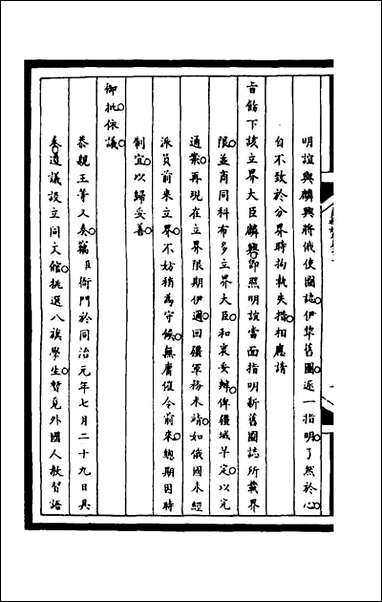 明誼與麟興將俄使圖誌伊犂舊圖逐一指明了然於心
自不致於分界時拘執失措相應請
旨飭下該立界大臣麟興卽照明誼當面指明新舊圖誌所載界
限並商同科布多立界大臣和衷妥辦俾疆域早定以完
通案再現在立界限期伊邇回疆軍務未靖如俄國未經
派員前來立界不妨稍為守候無庸催令前來總期因時
制宜以歸妥善
御批依議
恭親王等又奏竊臣衙門於同治元年七月二十九日具
奏遵議設立同文館挑選八旗學生暫覓外國人教習語